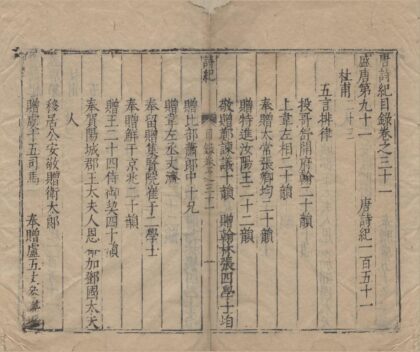 唐詩紀目錄卷之三十一
盛唐第九十一　唐詩紀一百五十一
杜甫
五言排律
投哥舒開府翰二十韻
上韋左相二十韻
奉贈太常張卿均二十韻
贈特進汝陽王二十二韻
敬贈鄭諫議十韻　贈翰林張四學士垍
詩紀　目錄卷之三十一　一
贈比部蕭郎中十兄
贈韋左丞丈濟
奉留贈集賢院崔于二學士
奉贈鮮于京兆二十韻
贈王二十四侍御契四十韻
奉賀陽城郡王太夫人恩命加鄧國太夫
人
移居公安敬贈衛大郎
贈虞十五司馬　奉贈盧五丈參謀